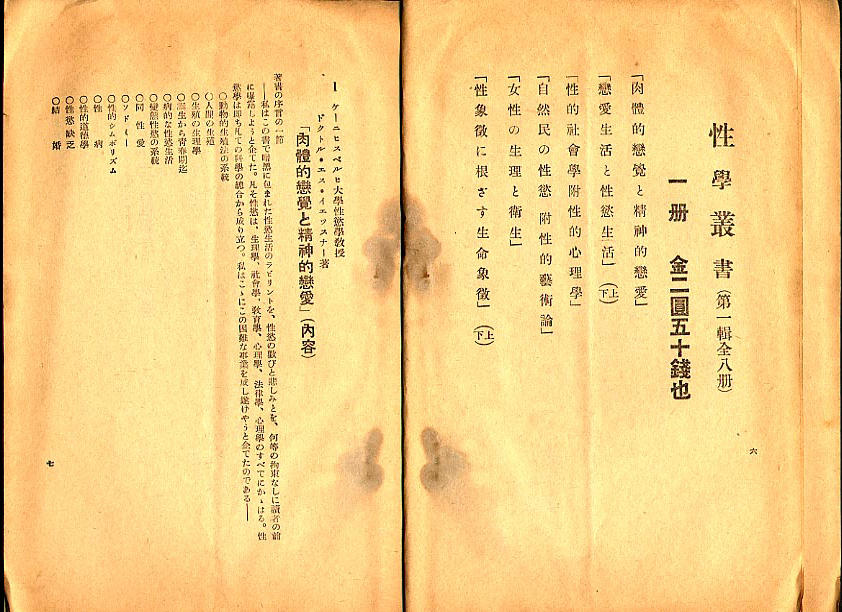 性學叢書（第一輯全八册）
一册　金二圓五十錢也
「肉體的戀覺と精神的戀愛」
「戀愛生活と性慾生活」（上下）
「性的社會學附性的心理學」
「自然民の性慾 附性的藝術論」
「女性の生理と衞生」
「性象徵に根ざす生命象徵」（上下）
六
1 ケーニヒスベルヒ大學性慾學教授
ドクトル・エス・イエッスナー著
「肉體的戀覺と精神的戀愛」（內容）
著書の序言の一節
――私はこの書で暗黑に包まれた性慾生活のラビリントを、性慾の歡びと悲しみとを、何等の拘束なしに讀者の前
に曝露しようと企てた。凡そ性慾は、生理學、社會學、教育學、心理學、法律學、心理學のすべてにかゝはる。性
慾學は即ち凡ての科學の總合から成り立つ。私はこゝにこの困難な事業を成し遂げやうと企てたのである――
〇動物的生殖法の系統
〇人間の生殖
〇生殖の生理學
〇誕生から青春期迄
〇病的な性慾生活
〇變態性慾の系統
〇同性愛
〇ソドミー
〇性的シムボリズム
〇性病
〇性的道德學
〇性慾缺乏
〇結婚
七